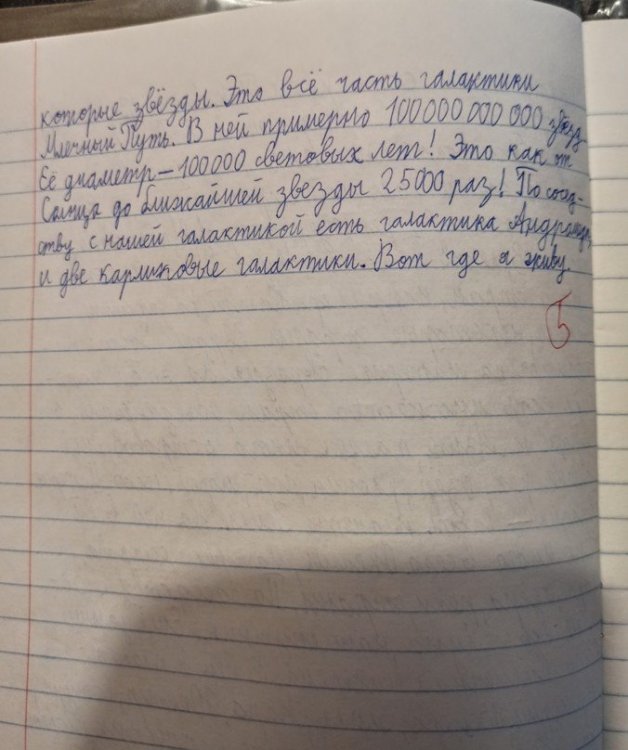 которые звёзды. Это всё часть галактики
Млечный Путь. В ней примерно 100000000000 звёзд
Её диаметр – 100000 световых лет! Это как от
Солнца до ближайшей звезды 25000 раз! По сосед-
ству с нашей галактикой есть галактика Андромеда
и две карликовые галактики. Вот где я живу
5